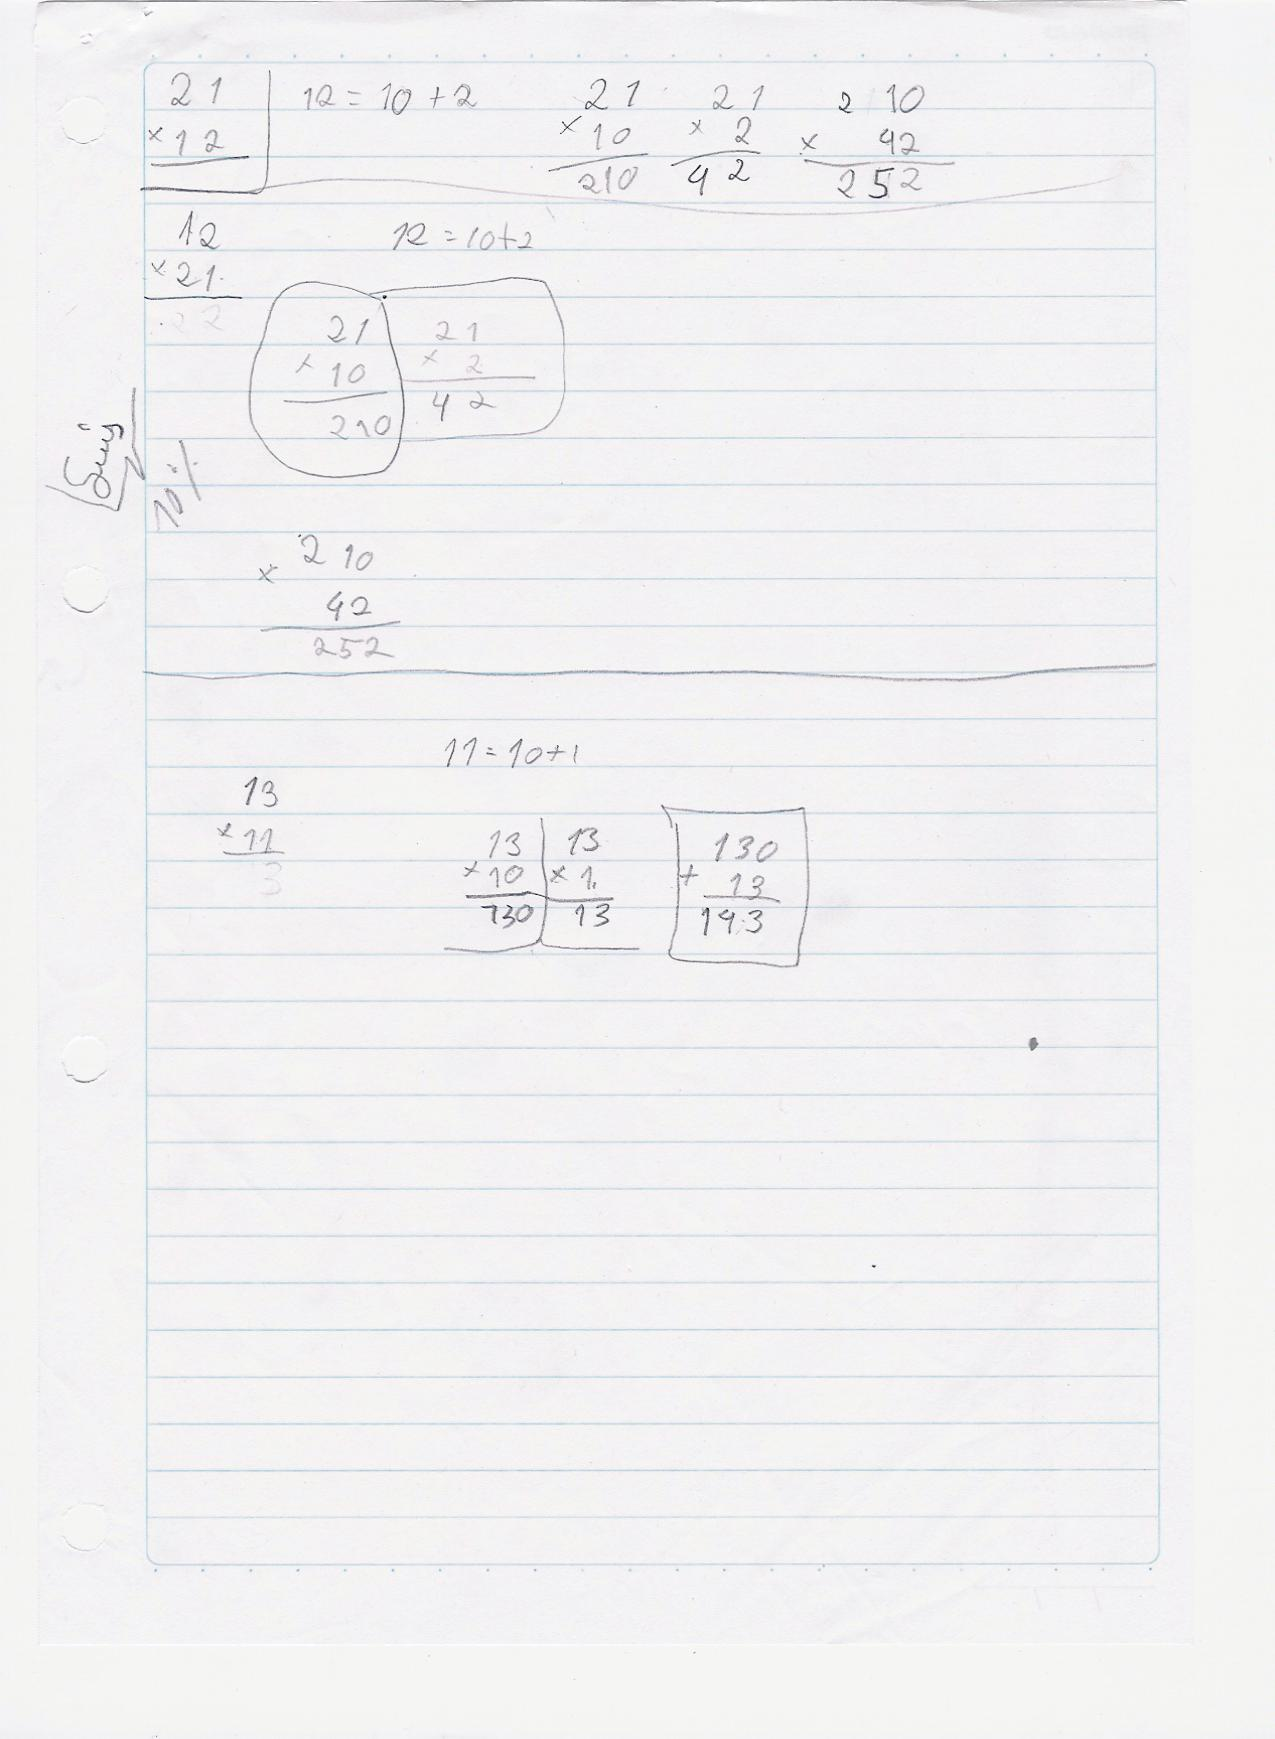 21
×12
12 = 10 + 2
21
×10
210
21
×2
42
210
× 42
252
12
×21
22
12 = 10+2
21
×10
210
21
×2
42
10%
210
×
42
252
11 = 10+1
13
×11
3
13
×10
130
13
×1
13
130
+ 13
143